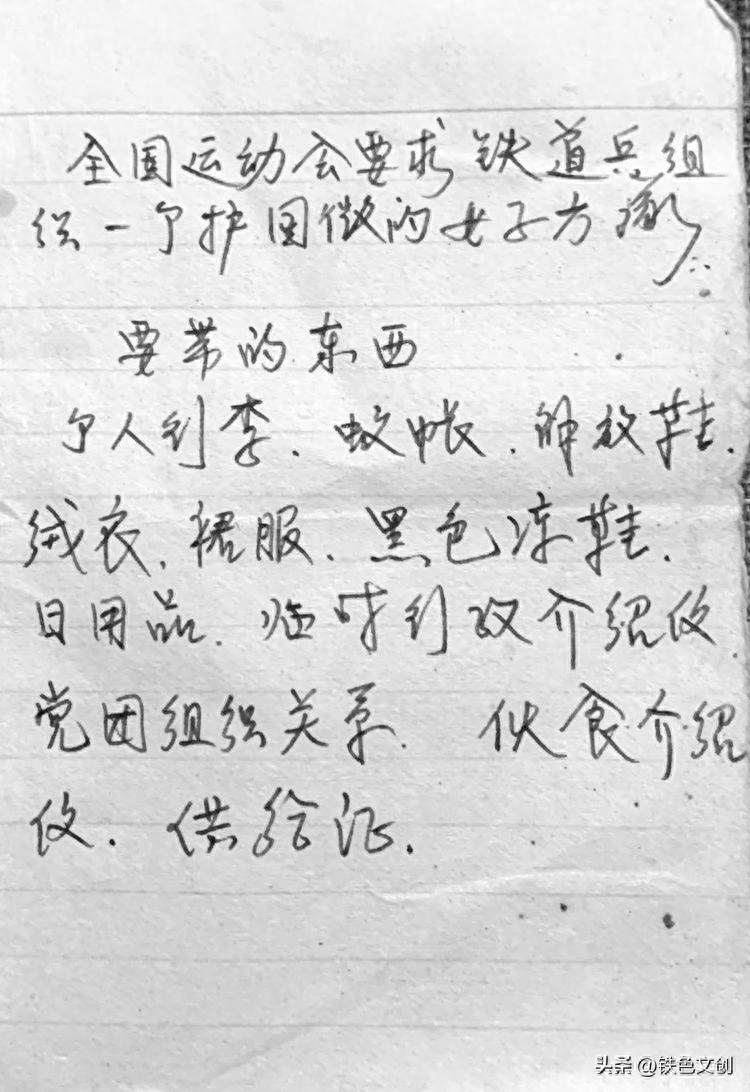 全国运动会要求铁道兵组
织一个护国徽的女子方队
要带的东西
个人行李、蚊帐、解放鞋、
绒衣、裙服、黑色凉鞋、
日用品、临时行政介绍信
党团组织关系、伙食介绍
信、供给证.
头条 @铁色文创